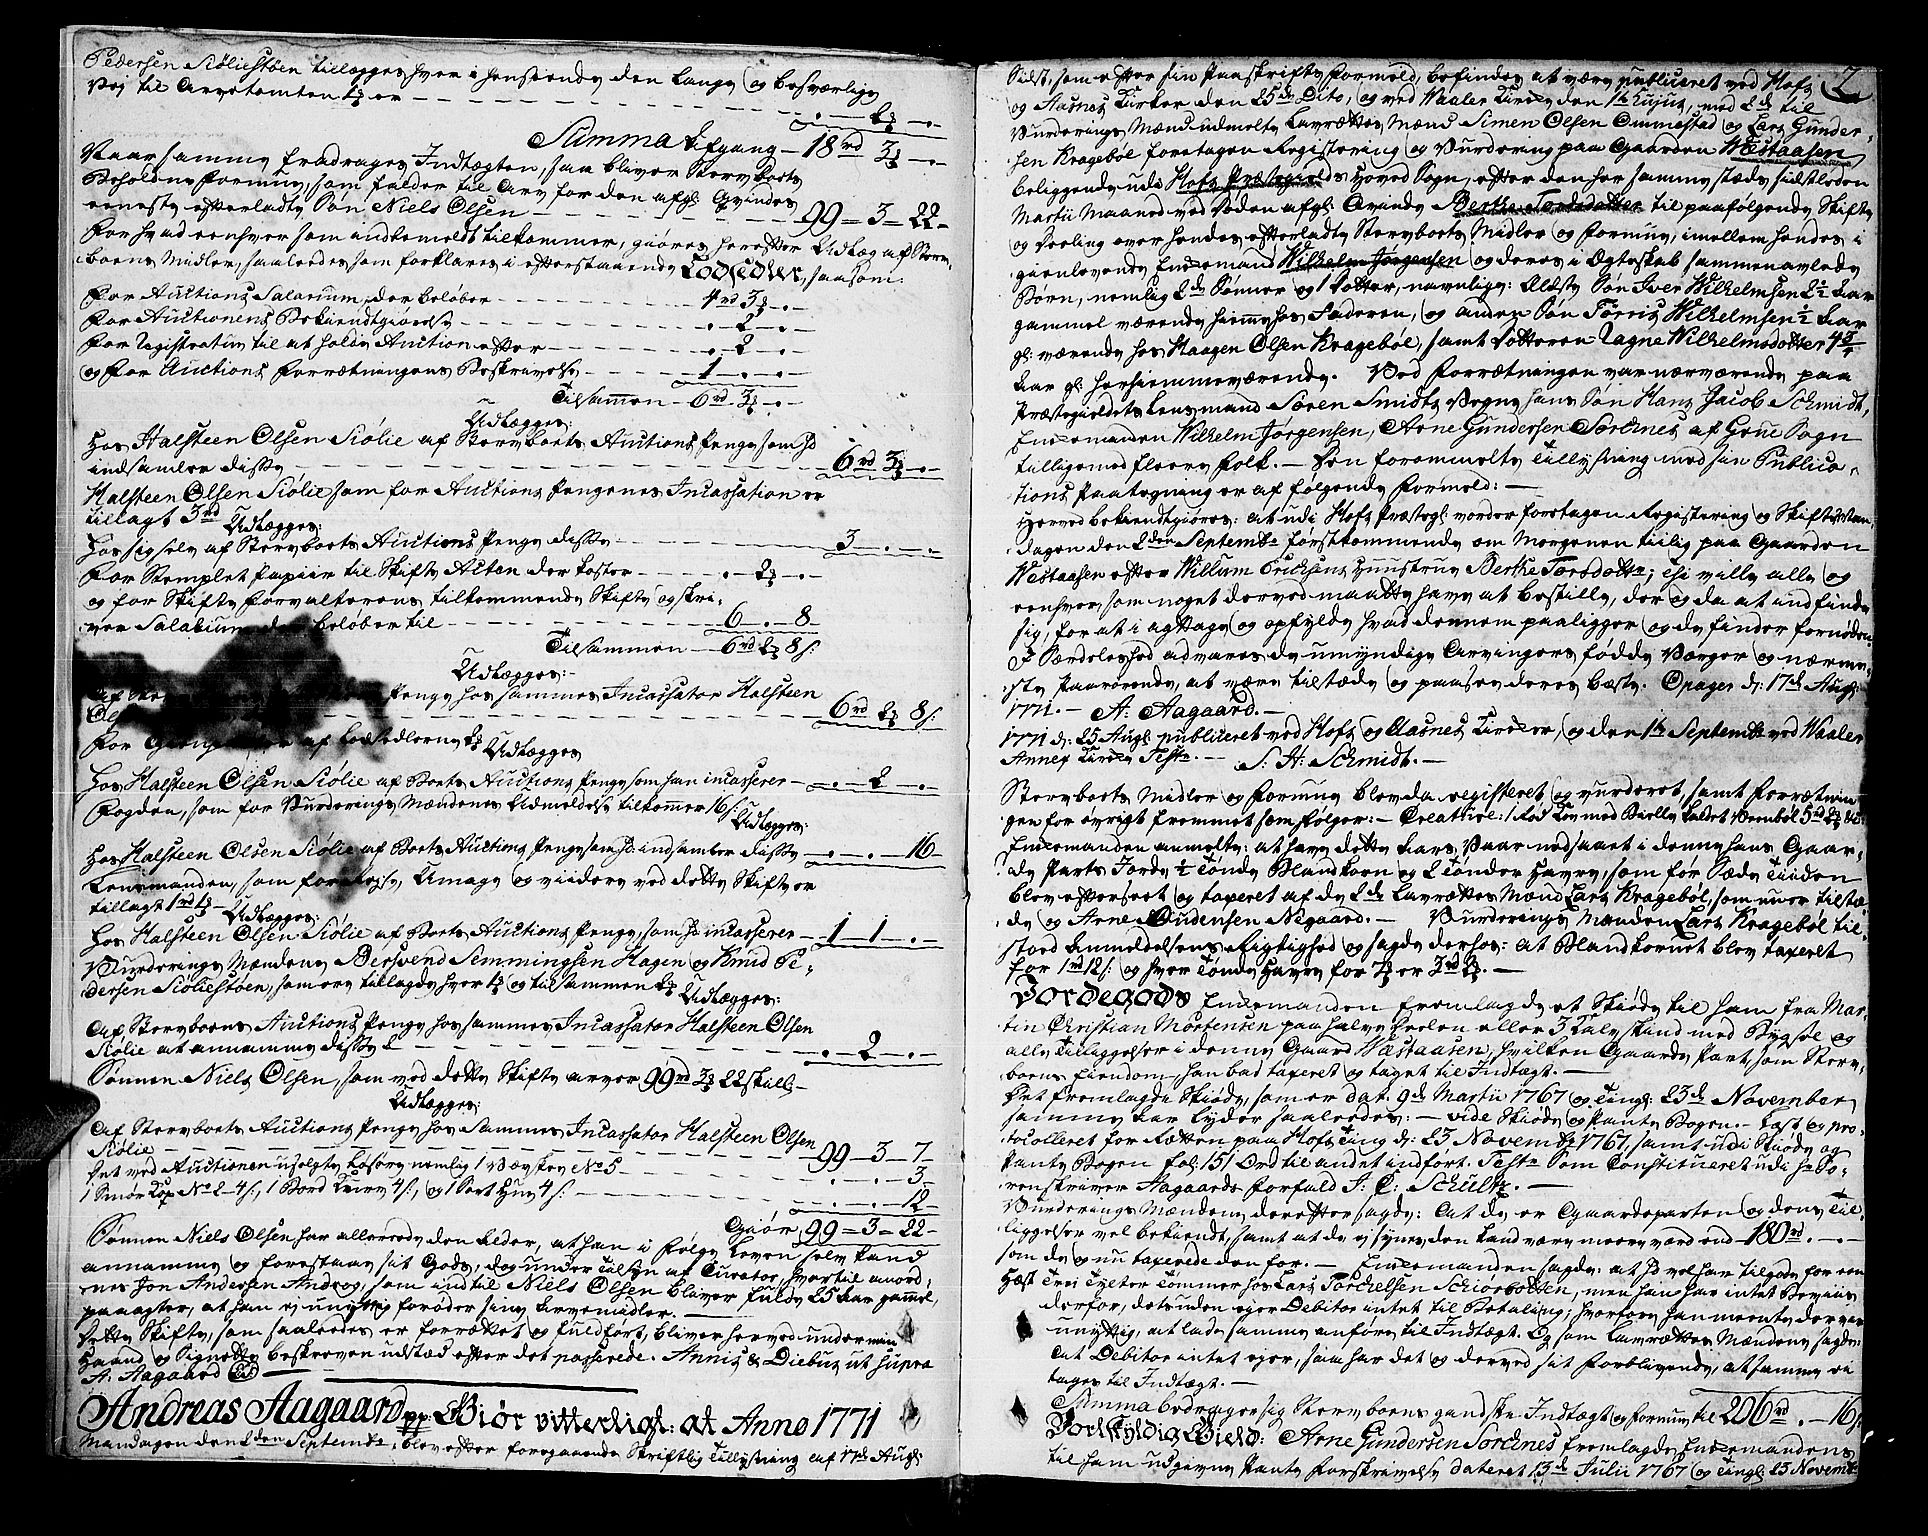 Pedersen Siøliestøen tillægges hver i henseende den lange og besværlige
Vej til Arvetomten 1 ¥ er — 2 ¥
Summa Afgang — 18 rd 3 ¥
Naar samme fradrages Indtægten, saa bliver Sterfboets
Beholdne Formue, som falder til Arv for den afgl: Qvindes
eeneste efterladte Søn Niels Olsen — 99 = 3 - 22 -
For hvad eenhver som anbemeldt tilkommer, giøres herefter Udlæg af Sterv-
boens Midler, saaledes som forklares i efterstaaende Lodsedler, saasom:
For Auctions Salarium, der beløber — 4 rd 3 ¥
For Auctionens Bekiendtgiørelse — 2
For Registratur til at holde Auction efter — 2
og For Auctions Forretningens Beskrivelse — 1
Tilsammen — 6 rd 3 ¥
Udlægges:
Hos Halsteen Olsen Siølie af Stervboets Auctions Penge som hd
indsamler disse — 6 rd 3 ¥
Halsteen Olsen Siølie som for Auctions Pengenes Incassation er
tillagt 3 rd Udlægges:
Hos sig selv af Stervboets Auctions Penge disse — 3
For Stemplet Papiir til Skifte Acten der koster — 2 ¥
og for Skifte Forvalterens tilkommende Skifte og skri-
ver Salarium der beløber til — 6 . - 8 -
Tilsammen — 6 rd 2 ¥ 8 s:
Udlægges:
Af Penge hos sammes Incassator Halsteen
Ols — 6 rd 2 ¥ 8 s:
For af Lodsedlerne 2 ¥ Udlægges
Hos Halsteen Olsen Siølie af Boets Auctions Penge som han incasserer — 2
Fogden, som for Vurderings Mændenes Udmeldelse tilkommer 16 s: Udlægges:
Hos Halsteen Olsen Siølie af Boets Auctions Penge som hd: indsamler disse — 16
Lensmanden, som for Umage og viidere ved dette Skifte er
tillagt 1 rd 1 ¥ Udlægges:
Hos Halsteen Olsen Siølie af Boets Auctions Penge, som hd incasserer — 1 1
Vurderings Mændene Bersvend Semmingsen Hagen og Knud Pe-
dersen Siøliestøen, som ere tillagde hver 1 ¥ og tilsammen 2 ¥ Udlægges:
Af Stervboens Auctions Penge hos sammes Incassator Halsteen Olsen
Siølie at annamme disse 2 — 2
Sønnen Niels Olsen, som ved dette Skifte arver 99 rd 3 ¥ 22 skill:
Udlægges:
Af Stervboets Auctions Penge hos Sammes Incassator Halsteen Olsen
Siølie — 99 - 3 - 7 -
Det ved Auctionen usolgte Løsøre nemlig 1 Vævskee No 5 — 3
1 Smør Kop No 2 - 4 s:, 1 Bord Kurv 4 s:, og 1 Sort Hue 4 s: — 12 -
Giør 99 = 3 - 22 -
Sønnen Niels Olsen har allerede den Alder, at han i Følge Loven selv kand
annamme og forestaae sit Gods, dog under Tilsyn af Curator, hvortil anord-
nes Jon Andersen Androg, som indtil Niels Olsen bliver fulde 25 Aar gammel,
paaagter, at han ej unyttig forøder sine Arvemidler. —
Dette Skifte, som saaledes er forrettet og fuldført, bliver herved under min
Haand og Signette beskreven udstæd efter det passerede. Annis & Diebus ut supra
A: Aagaard
Andreas Aagaard pp: Giør vitterligt: at Anno 1771
Mandagen den 2den Septembr, blev efter foregaaende Skriftlig Tillysning af 17de Augl:
2
sidst, som efter sin Paaskrifts Formeld, befindes at være publiceret ved Hofs
og Aasnes Kirker den 25de Dito, og ved Waaler Kirke den 1te hujus, med 2de til
Vurderings Mænd udmelte Lavrettes Mænd Simen Olsen Ommestad og Lars Gunder-
sen Kragebøl foretagen Registering og Vurdering paa Gaarden Wæstaasen
beliggende udi Hofs Præstegields Hoved Sogn, efter den her sammestæds sidstleden
Martii Maaned ved Døden afgl: Qvinde Berthe Torsdatter til paafølgende Skifte
og Deeling over hendes efterladte Stervboets Midler og Formue, imellem hendes i
gienlevende Enkemand Wilhelm Jørgensen og deres i Ægteskab sammenavlede
Børn, nemlig 2de Sønner og 1 Dotter, navnlig: Ældste Søn Iver Wilhelmsen 2½ Aar
gammel værende hiemme hos Faderen, og anden Søn Tørris Wilhelmsen ½ Aar
gl: værende hos Haagen Olsen Kragebøl, samt Dotteren Ragne Wilhelmsdotter 4
Aar gl: hersiemmeværende. Ved Forretningen var nærværende paa
Præstegieldets Lensmand Søren Smidts Vegne hans Søn Hans Jacob Schmidt,
Enkemanden Wilhelm Jørgensen, Arne Gundersen Sordnes af Grue Sogn
tilligemed fleere Folk. — Den forommelte Tillysning med sin Publica-
tions Paategning er af følgende Formeld: —
Herved bekiendtgiøres: at udi Hofs Præstegl: vorder foretagen Registering og Skifte Man-
dagen den 2den Septembr førstkommende om Morgenen tiilig paa Gaarden
Wæstaasen efter Willum Erichsens Huustrue Berthe Torsdottr; thi ville alle og
eenhver, som noget derved maatte have at bestille, der og da at indfinde
sig, for at i agttage og opfylde hvad dennem paaligger og de finder fornøden
I Særdeleshed advares de umyndige Arvingers fødde Værger og nærme-
ste Paarørende, at være tilstæde og paasee deres bæste. Opager d: 17de Augl:
1771. — A: Aagaard. —
1771 d: 25 Augl: publiceret ved Hofs og Aasnes Kirker, og den 1te Septembr ved Waaler
Annex Kirke Testr. — S. H: Schmidt. —
Stervboets Midler og Formue blev da registeret og vurderet, samt Forretnin
gen for øvrigt fremmet som følger: — Creature: 1 Rød Koe med Bielle kaldet Vennbøl 5 rd 2 ¥
Enkemanden anmelte: at have dette Aars Vaar nedsaaet i denne hans Gaar-
de Parts Jord ½ Tønde Blandkorn og 2 Tønder Havre, som før Sæde Tiiden
blev efterseet og taxeret af de 2de Lavrettes Mænd Lars Kragebøl, som nu er tilstæ-
de og Arne Oudensen Nigaard. — Vurderings Manden Lars Kragebøl til-
stoed Anmeldelsens Rigtighed og sagde derhos: at Blandkornet blev taxeret
for 1 rd 12 s: og hver Tønde Havre for 7 ¥ er 3 rd 2 ¥. —
Jordegods Enkemanden fremlagde et Skiøde til ham fra Mar-
tin Christian Mortensen paa halve Deelen eller 3 Kalvskind med Bygsel og
alle Tilliggelser i denne Gaard Wæstaasen, hvilken Gaarde Part, som Sterv-
boens Eiendom, han bad taxeret og taget til Indtægt. —
Det fremlagde Skiøde, som er dat: 9de Martii 1767 og Tingl: 23de November
samme Aar lyder saaledes: — vide Skiøde og Pante Bogen. — Læst og pro-
tocolleret for Retten paa Hofs Ting d: 23 Novembr 1767, samt udi Skiøde og
Pante Bogen fol: 151 Ord til andet indført. Testr Som Constitueret udi Hr So-
renskriver Aagaards Forfald J: C: Schultz. —
Vurderings Mændene derefter sagde: At de er Gaardeparten og dens Til-
liggelser vel bekiendt, samt at de ej synes den kand være meere værd end 180 rd. —
som de og nu taxerede den for. — Enkemanden sagde: at hd vel har tilgode for een
Hæst Trei Tylter Tømmer hos Lars Torchelsen Schiørbotten, men han har intet Beviis
derfor, desuden ejer Debitor intet til Betaling; hvorfore han meente det var
unyttig, at lade samme anføre til Indtægt. Og som Lavrettes Mændene sagde:
at Debitor intet ejer, saa har det og derved sit Forblivende, at samme ei
tages til Indtægt. —
Summa bedrager sig Stervboens gandske Indtægt og Formue til 206 rd. — 16 s
Bortskyldig Gield: Arne Gundersen Sordnes fremlagde Enkemandens
til ham udgivne Pante Forskrivelse dateret 13de Julii 1767 og Tingl: 25 Novembr